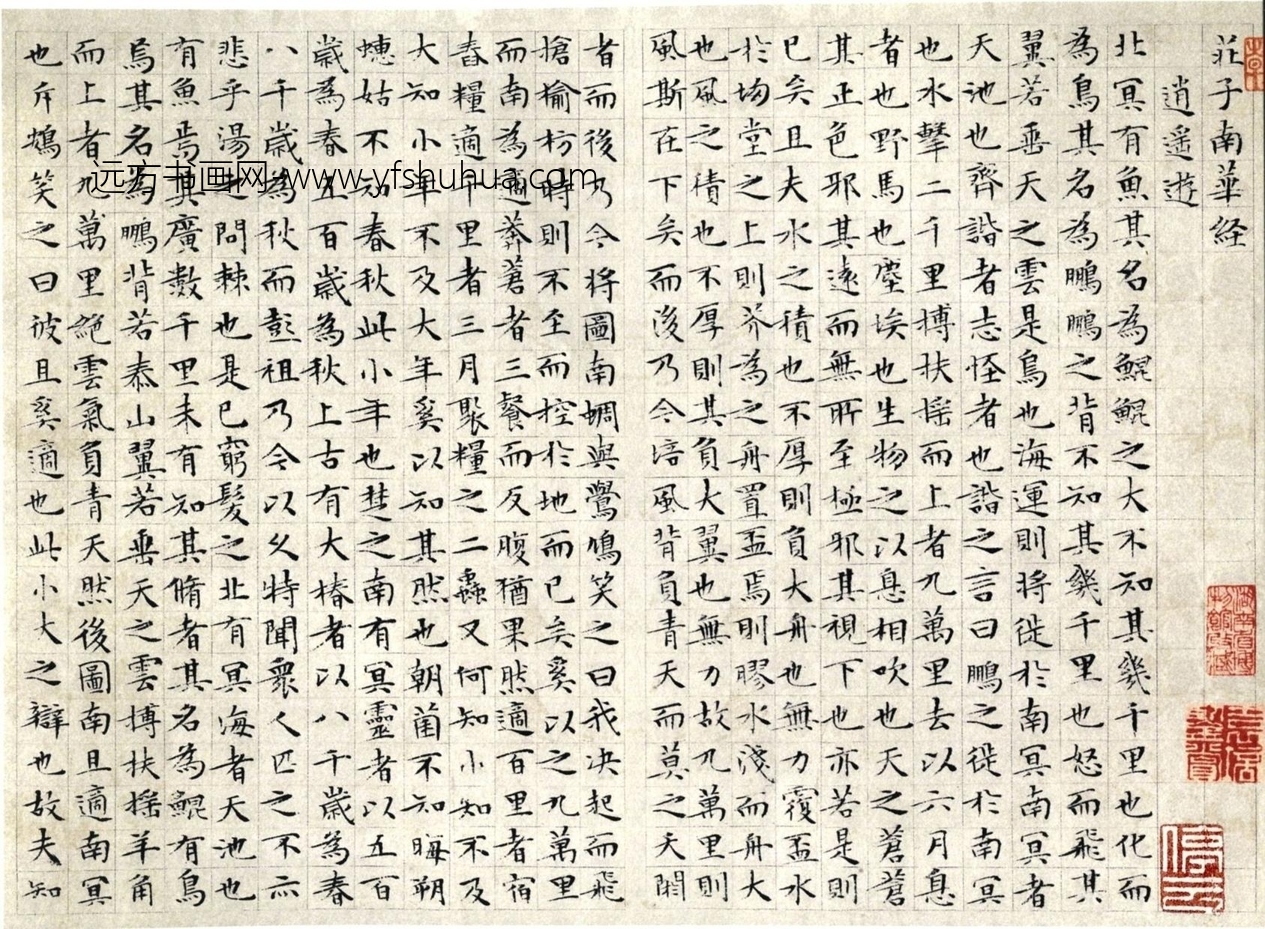 莊子南華経
逍遥遊
北冥有魚其名為鯤鯤之大不知其幾千里也化而
為鳥其名為鵬鵬之背不知其幾千里也怒而飛其
翼若垂天之雲是鳥也海運則将徙於南冥南冥者
天池也齊諧者志怪者也諧之言曰鵬之徙於南冥
也水擊二千里搏扶摇而上者九萬里去以六月息
者也野馬也塵埃也生物之以息相吹也天之蒼蒼
其正色邪其遠而無所至極邪其視下也亦若是則
已矣且夫水之積也不厚則負大舟也無力覆盃水
於坳堂之上則芥為之舟置盃焉則膠水淺而舟大
也風之積也不厚則其負大翼也無力故九萬里則
風斯在下矣而後乃今培風背負青天而莫之夭閼
者而後乃今将圖南蜩與鷽鳩笑之曰我决起而飛
槍榆枋時則不至而控於地而已矣奚以之九萬里
而南為適莽蒼者三餐而反腹猶果然適百里者宿
舂糧適千里者三月聚糧之二蟲又何知小知不及
大知小年不及大年奚以知其然也朝菌不知晦朔
蟪蛄不知春秋此小年也楚之南有冥靈者以五百
歲為春五百歲為秋上古有大椿者以八千歲為春
八千歲為秋而彭祖乃今以久特聞衆人匹之不亦
悲乎湯之問棘也是已窮髮之北有冥海者天池也
有魚焉其廣數千里未有知其脩者其名為鯤有鳥
焉其名為鵬背若泰山翼若垂天之雲搏扶摇羊角
而上者九萬里絶雲氣負青天然後圖南且適南冥
也斥鴳笑之曰彼且奚適也此小大之辯也故夫知
远方书画网 www.yfshuhua.com